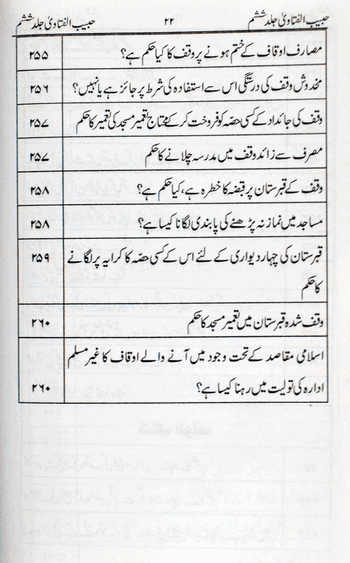 حبیب الفتاویٰ جلد ششم ۲۲ حبیب الفتاویٰ جلد ششم
مصارف اوقاف کے ختم ہونے پر وقف کا کیا حکم ہے؟ ۲۵۵
مخدوش وقف کی درستگی اس سے استفادہ کی شرط پر جائز ہے یا نہیں؟ ۲۵۶
وقف کی جائداد کے کسی حصہ کو فروخت کر کے محتاج تعمیر مسجد کی تعمیر کا حکم ۲۵۷
مصرف سے زائد وقف میں مدرسہ چلانے کا حکم ۲۵۷
وقف کے قبرستان پر قبضہ کا خطرہ ہے، کیا حکم ہے؟ ۲۵۸
مساجد میں نماز نہ پڑھنے کی پابندی لگانا کیسا ہے؟ ۲۵۸
قبرستان کی چہار دیواری کے لئے اس کے کسی حصہ کا کرایہ پر لگانے ۲۵۹
کا حکم
وقف شدہ قبرستان میں تعمیر مسجد کا حکم ۲۶۰
اسلامی مقاصد کے تحت وجود میں آنے والے اوقاف کا غیر مسلم
ادارہ کی تولیت میں رہنا کیسا ہے؟ ۲۶۰